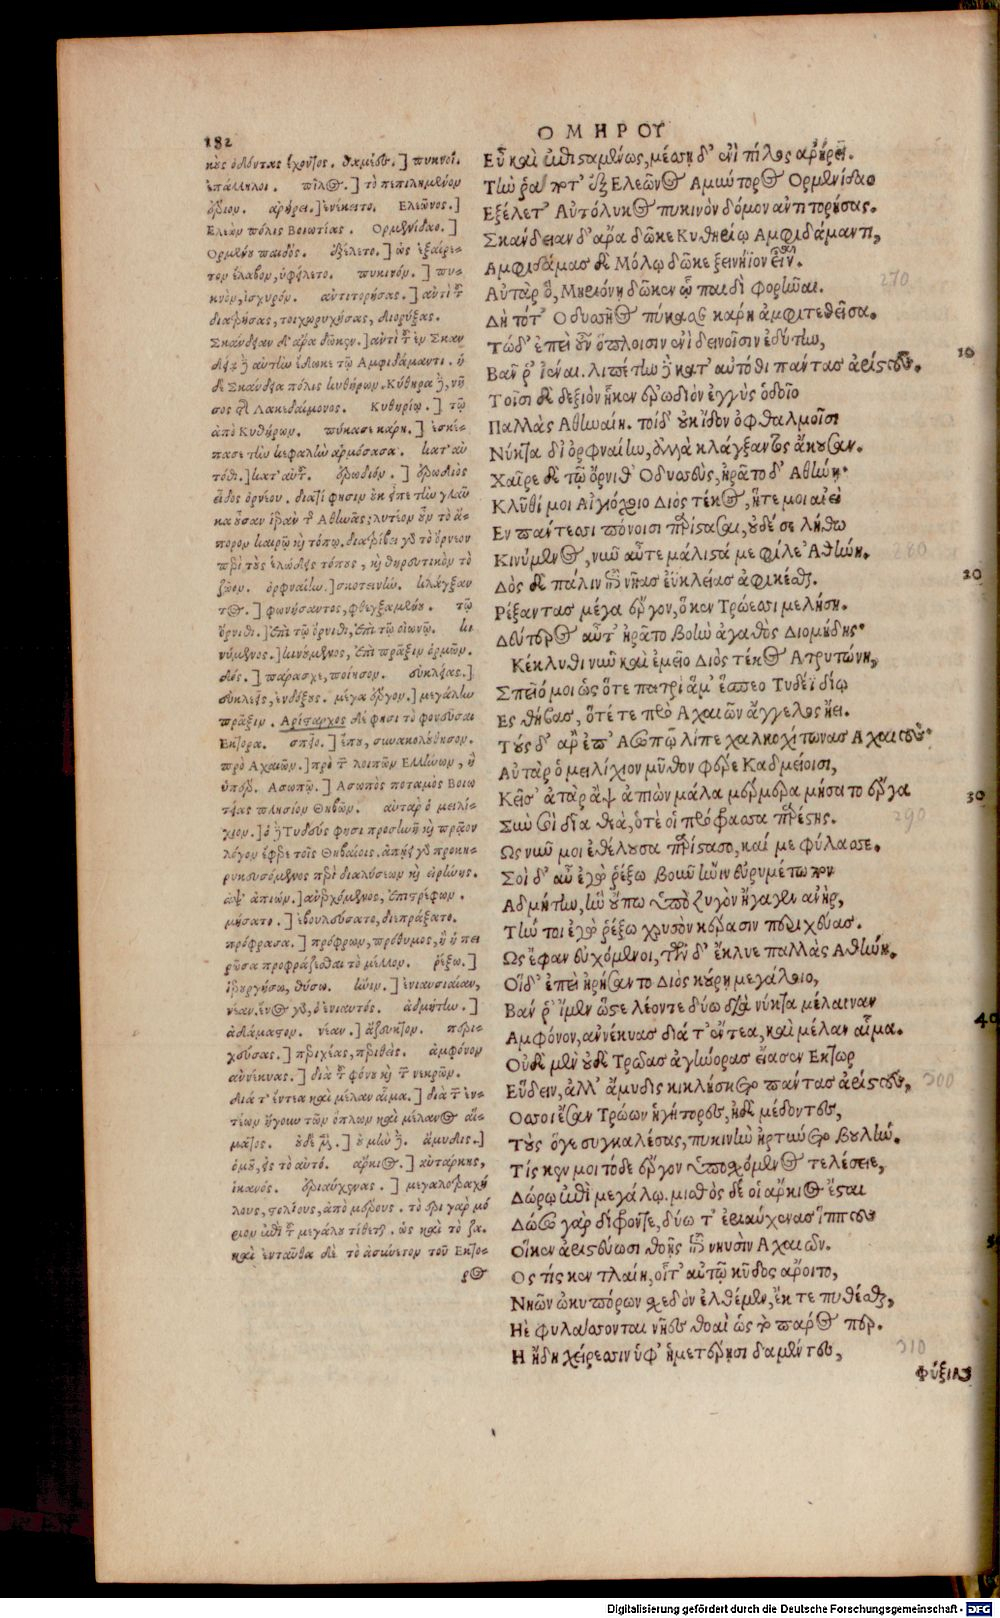 182
ΟΜΗΡΟΥ
κὺς ὀδόντας ἔχοντος. θαμέες.] πυκνοί.
ἐπάλληλοι. πῖλος.] τὸ πεπιλημένον
ἔριον. ἀρήρει.] ἐνέκειτο. Ελεῶνος.]
Ελεὼν πόλις Βοιωτίας. Ορμενίδαο.]
Ορμένου παιδός. ἐξέλετο.] ὡς ἐξαίρε-
τον ἔλαβον, ὑφείλετο. πυκινόν.] πυ-
κνὸν, ἰσχυρόν. ἀντιτορήσας.] ἀντὶ τοῦ
διατρήσας, τοιχωρυχήσας, διορύξας.
Σκάνδειαν δ' ἄρα δῶκεν.] ἀντὶ τοῦ ἐν Σκαν
δείᾳ δὲ αὐτὴν ἔδωκε τῷ Αμφιδάμαντι. ἡ
δὲ Σκάνδεια πόλις κυθήρων. Κύθηρα δὲ, νῆ
σος τῆς Λακεδαίμονος. Κυθηρίῳ.] τῷ
ἀπὸ Κυθήρων. πύκασε κάρη.] ἐσκέ-
πασε τὴν κεφαλὴν ἁρμόσασα. κατ' αὐ
τόθι.] κατ' αὐτοῦ. ἐρωδιόν.] ἐρωδιὸς
εἶδος ὀρνέου. διατί φησιν οὐκ εἶπε τὴν γλαῦ
κα οὖσαν ἱερὰν τῆς Αθηνᾶς; λυτέον οὖν τὸ ἄ-
πορον καιρῷ καὶ τόπῳ. διατρίβει γὰρ τὸ ὄρνεον
περὶ τοὺς ἑλώδεις τόπους, καὶ θηρευτικὸν τὸ
ζῶον. ὀρφναίην.] σκοτεινήν. κλάγξαν
τος.] φωνήσαντος, φθεγξαμένου. τῷ
ὄρνιθι.] ἐπὶ τῷ ὄρνιθι, ἐπὶ τῷ οἰωνῷ. κι
νύμενος.] κινούμενος, ἐπὶ πρᾶξιν ὁρμῶν.
δός.] παράσχε, ποίησον. εὐκλείας.]
εὐκλεεῖς, ἐνδόξους. μέγα ἔργον.] μεγάλην
πρᾶξιν. Αρίσταρχος δέ φησι τὸ φονεῦσαι
Εκτορα. σπεῖο.] ἕπου, συνακολούθησον.
πρὸ Αχαιῶν.] πρὸ τῶν λοιπῶν Ελλήνων, ἢ
ὑπέρ. Ασωπῷ.] Ασωπὸς ποταμὸς Βοιω
τίας πλησίον Θηβῶν. αὐτὰρ ὁ μειλί-
χιον.] ὁ δὲ Τυδεύς φησι προσηνῆ καὶ πρᾶον
λόγον ἔφερε τοῖς Θηβαίοις. ἀπῄει γὰρ προκη-
ρυκευσόμενος περὶ διαλύσεων καὶ εἰρήνης.
ἂψ ἀπιών.] ἀνερχόμενος, ἐπιστρέφων.
μήσατο.] ἐβουλεύσατο, διεπράξατο.
πρόφρασσα.] πρόφρων, πρόθυμος, ἢ ἡ πει
ρῶσα προφράζεσθαι τὸ μέλλον. ῥέξω.]
ἱερουργήσω, θύσω. ἦνιν.] ἐνιαυσιαίαν,
νέαν. ἔνος γὰρ, ὁ ἐνιαυτός. ἀδμήτην.]
ἀδάμαστον. νέαν.] ἄζευκτον. περι-
χεύσας.] περιχέας, περιθείς. ἀμφόνον
ἀννέκυας.] διὰ τοῦ φόνου καὶ τῶν νεκρῶν.
διά τ' ἔντεα καὶ μέλαν αἷμα.] διὰ τῶν ἐν-
τέων ἤγουν τῶν ὅπλων καὶ μέλανος αἵ-
ματος. οὐδὲ μὲν.] οὐ μὴν δέ. ἄμυδις.]
ὁμοῦ, εἰς τὸ αὐτό. ἄρκιος.] αὐτάρκης,
ἱκανός. ἐριαύχενας.] μεγαλοτραχή
λους, τελείους, ἀπὸ μέρους. τὸ ἐρι γὰρ μό
ριον ἐπὶ τοῦ μεγάλου τίθεται. ὡς καὶ τὸ ζα.
καὶ ἐνταῦθα δὲ τὸ ἀσύνετον τοῦ Εκτο-
ρος
Εὖ καὶ ἐπισταμένως, μέσση δ' ἐνὶ πῖλος ἀρήρει.
Τήν ῥα ποτ' ἐξ Ελεῶνος Αμύντορος Ορμενίδαο
Εξέλετ' Αὐτόλυκος πυκινὸν δόμον ἀντιτορήσας.
Σκάνδειαν δ' ἄρα δῶκε Κυθηρίῳ Αμφιδάμαντι,
Αμφιδάμας δὲ Μόλῳ δῶκε ξεινήϊον εἶναι.
270
Αὐτὰρ ὃ, Μηριόνῃ δῶκεν ᾧ παιδὶ φορῆναι.
Δὴ τότ' Οδυσσῆος πύκασεν κάρη ἀμφιτεθεῖσα.
Τώδ' ἐπεὶ οὖν ὅπλοισιν ἐνὶ δεινοῖσιν ἐδύτην,
10
Βαῦ ῥ' ἰέναι. λιπέτην δὲ κατ' αὐτόθι πάντας ἀρίστους.
Τοῖσι δὲ δεξιὸν ἧκεν ἐρωδιὸν ἐγγὺς ὁδοῖο
Παλλὰς Αθηναίη. τοίδ' οὐκ ἴδον ὀφθαλμοῖσι
Νύκτα δι' ὀρφναίην, ἀλλὰ κλάγξαντος ἄκουσαν.
Χαῖρε δὲ τῷ ὄρνιθ' Οδυσεὺς, ἠρᾶτο δ' Αθήνῃ·
Κλῦθί μοι Αἰγιόχοιο Διὸς τέκος, ἥτε μοι αἰεὶ
Εν πάντεσσι πόνοισι παρίστασαι, οὐδέ σε λήθω
280
Κινύμενος, νῦν αὖτε μάλιστά με φίλε' Αθήνη.
20
Δὸς δὲ πάλιν ἐπὶ νῆας ἐϋκλείας ἀφικέσθαι.
Ρέξαντας μέγα ἔργον, ὅ κεν Τρώεσσι μελήσῃ.
Δεύτερος αὖτ' ἠρᾶτο βοὴν ἀγαθὸς Διομήδης·
Κέκλυθι νῦν καὶ ἐμεῖο Διὸς τέκος Ατρυτώνη,
Σπεῖό μοι ὡς ὅτε πατρὶ ἅμ' ἕσπεο Τυδέϊ δίῳ
Ες θήβας, ὅτέ τε πρὸ Αχαιῶν ἄγγελος ᾔει.
Τοὺς δ' ἄρ' ἐπ' Ασωπῷ λίπε χαλκοχίτωνας Αχαιούς·
Αὐτὰρ ὁ μειλίχιον μῦθον φέρε Καδμείοισι,
30
Κεῖσ' ἀτὰρ ἂψ ἀπιὼν μάλα μέρμερα μήσατο ἔργα
290
Σὺν σοὶ δῖα θεὰ, ὅτέ οἱ πρόφρασσα παρέστης.
Ως νῦν μοι ἐθέλουσα παρίστασο, καί με φύλασσε.
Σοὶ δ' αὖ ἐγὼ ῥέξω βοῦν ἦνιν εὐρυμέτωπον
Αδμήτην, ἣν οὔπω ὑπὸ ζυγὸν ἤγαγεν ἀνὴρ,
Τήν τοι ἐγὼ ῥέξω χρυσὸν κέρασιν περιχεύας.
Ως ἔφαν εὐχόμενοι, τῶν δ' ἔκλυε παλλὰς Αθήνη.
Οἵδ' ἐπεὶ ἠρήσαντο Διὸς κούρῃ μεγάλοιο,
Βάν ῥ' ἴμεν ὥστε λέοντε δύω διὰ νύκτα μέλαιναν
40
Αμφόνον, ἀννέκυας διά τ' ἔντεα, καὶ μέλαν αἷμα.
Οὐδὲ μὲν οὐδὲ Τρῶας ἀγήνορας εἴασεν Εκτωρ
300
Εὕδειν, ἀλλ' ἄμυδις κικλήσκετο πάντας ἀρίστους,
Οσσοι ἔσαν Τρώων ἡγήτορες, ἠδὲ μέδοντες,
Τοὺς ὅγε συγκαλέσας, πυκινὴν ἠρτύνετο βουλήν.
Τίς κεν μοι τόδε ἔργον ὑποσχόμενος τελέσειε,
Δώρῳ ἐπὶ μεγάλῳ. μισθὸς δέ οἱ ἄρκιος ἔσται
Δώσω γὰρ δίφρόντε, δύω τ' ἐριαύχενας ἵππους
Οἵ κεν ἀριστεύωσι θοῇς ἐπὶ νηυσὶν Αχαιῶν.
Ος τίς κεν τλαίη, οἷτ' αὐτῷ κῦδος ἄροιτο,
Νηῶν ὠκυπόρων σχεδὸν ἐλθέμεν, ἔκ τε πυθέσθαι,
Ηὲ φυλάσσονται νῆες θοαὶ ὡς τὸ πάρος περ.
310
Η ἤδη χείρεσσιν ὑφ' ἡμετέρῃσι δαμέντες,
Φύξιν
Digitalisierung gefördert durch die Deutsche Forschungsgemeinschaft - DFG